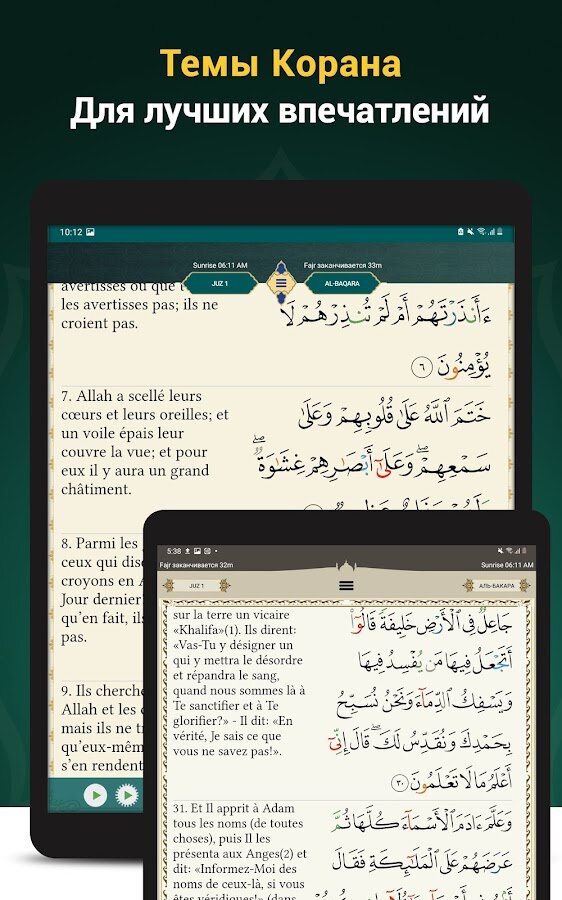 Темы Корана
Для лучших впечатлений
10:12
Sunrise 06:11 AM
Fajr заканчивается 33m
JUZ 1
AL-BAQARA
les avertisses pas; ils ne
croient pas.
ءَأَنذَرْتَهُمْ أَمْ لَمْ تُنذِرْهُمْ لَا
يُؤْمِنُونَ ٦
7. Allah a scellé leurs
cœurs et leurs oreilles; et
un voile épais leur
couvre la vue; et pour
eux il y aura un grand
châtiment.
خَتَمَ ٱللَّهُ عَلَىٰ قُلُوبِهِمْ وَعَلَىٰ
سَمْعِهِمْ ۖ وَعَلَىٰٓ أَبْصَـٰرِهِمْ غِشَـٰوَةٌ ۖ
8. Parmi les
ceux qui
croyons en
Jour dernier
qu'en fait, ils
pas.
9. Ils
Allah et les
mais ils ne
qu'eux-
s'en rendent
5:38
Fajr заканчивается 32m
Sunrise 06:11 AM
JUZ 1
АЛЬ-БАКАРА
sur la terre un vicaire
«Khalifa»(1). Ils dirent:
«Vas-Tu y désigner un
qui y mettra le désordre
et répandra le sang,
quand nous sommes là à
Te sanctifier et à Te
glorifier?» - Il dit: «En
vérité, Je sais ce que
vous ne savez pas!».
جَاعِلٌ فِى ٱلْأَرْضِ خَلِيفَةً ۖ قَالُوٓا۟
أَتَجْعَلُ فِيهَا مَن يُفْسِدُ فِيهَا
وَيَسْفِكُ ٱلدِّمَآءَ وَنَحْنُ نُسَبِّحُ
بِحَمْدِكَ وَنُقَدِّسُ لَكَ ۖ قَالَ إِنِّىٓ
أَعْلَمُ مَا لَا تَعْلَمُونَ ٣٠
31. Et Il apprit à Adam
tous les noms (de toutes
choses), puis Il les
présenta aux Anges(2) et
dit: «Informez-Moi des
noms de ceux-là, si vous
êtes véridiques!» (dans
وَعَلَّمَ ءَادَمَ ٱلْأَسْمَآءَ كُلَّهَا ثُمَّ
عَرَضَهُمْ عَلَى ٱلْمَلَـٰٓئِكَةِ فَقَالَ